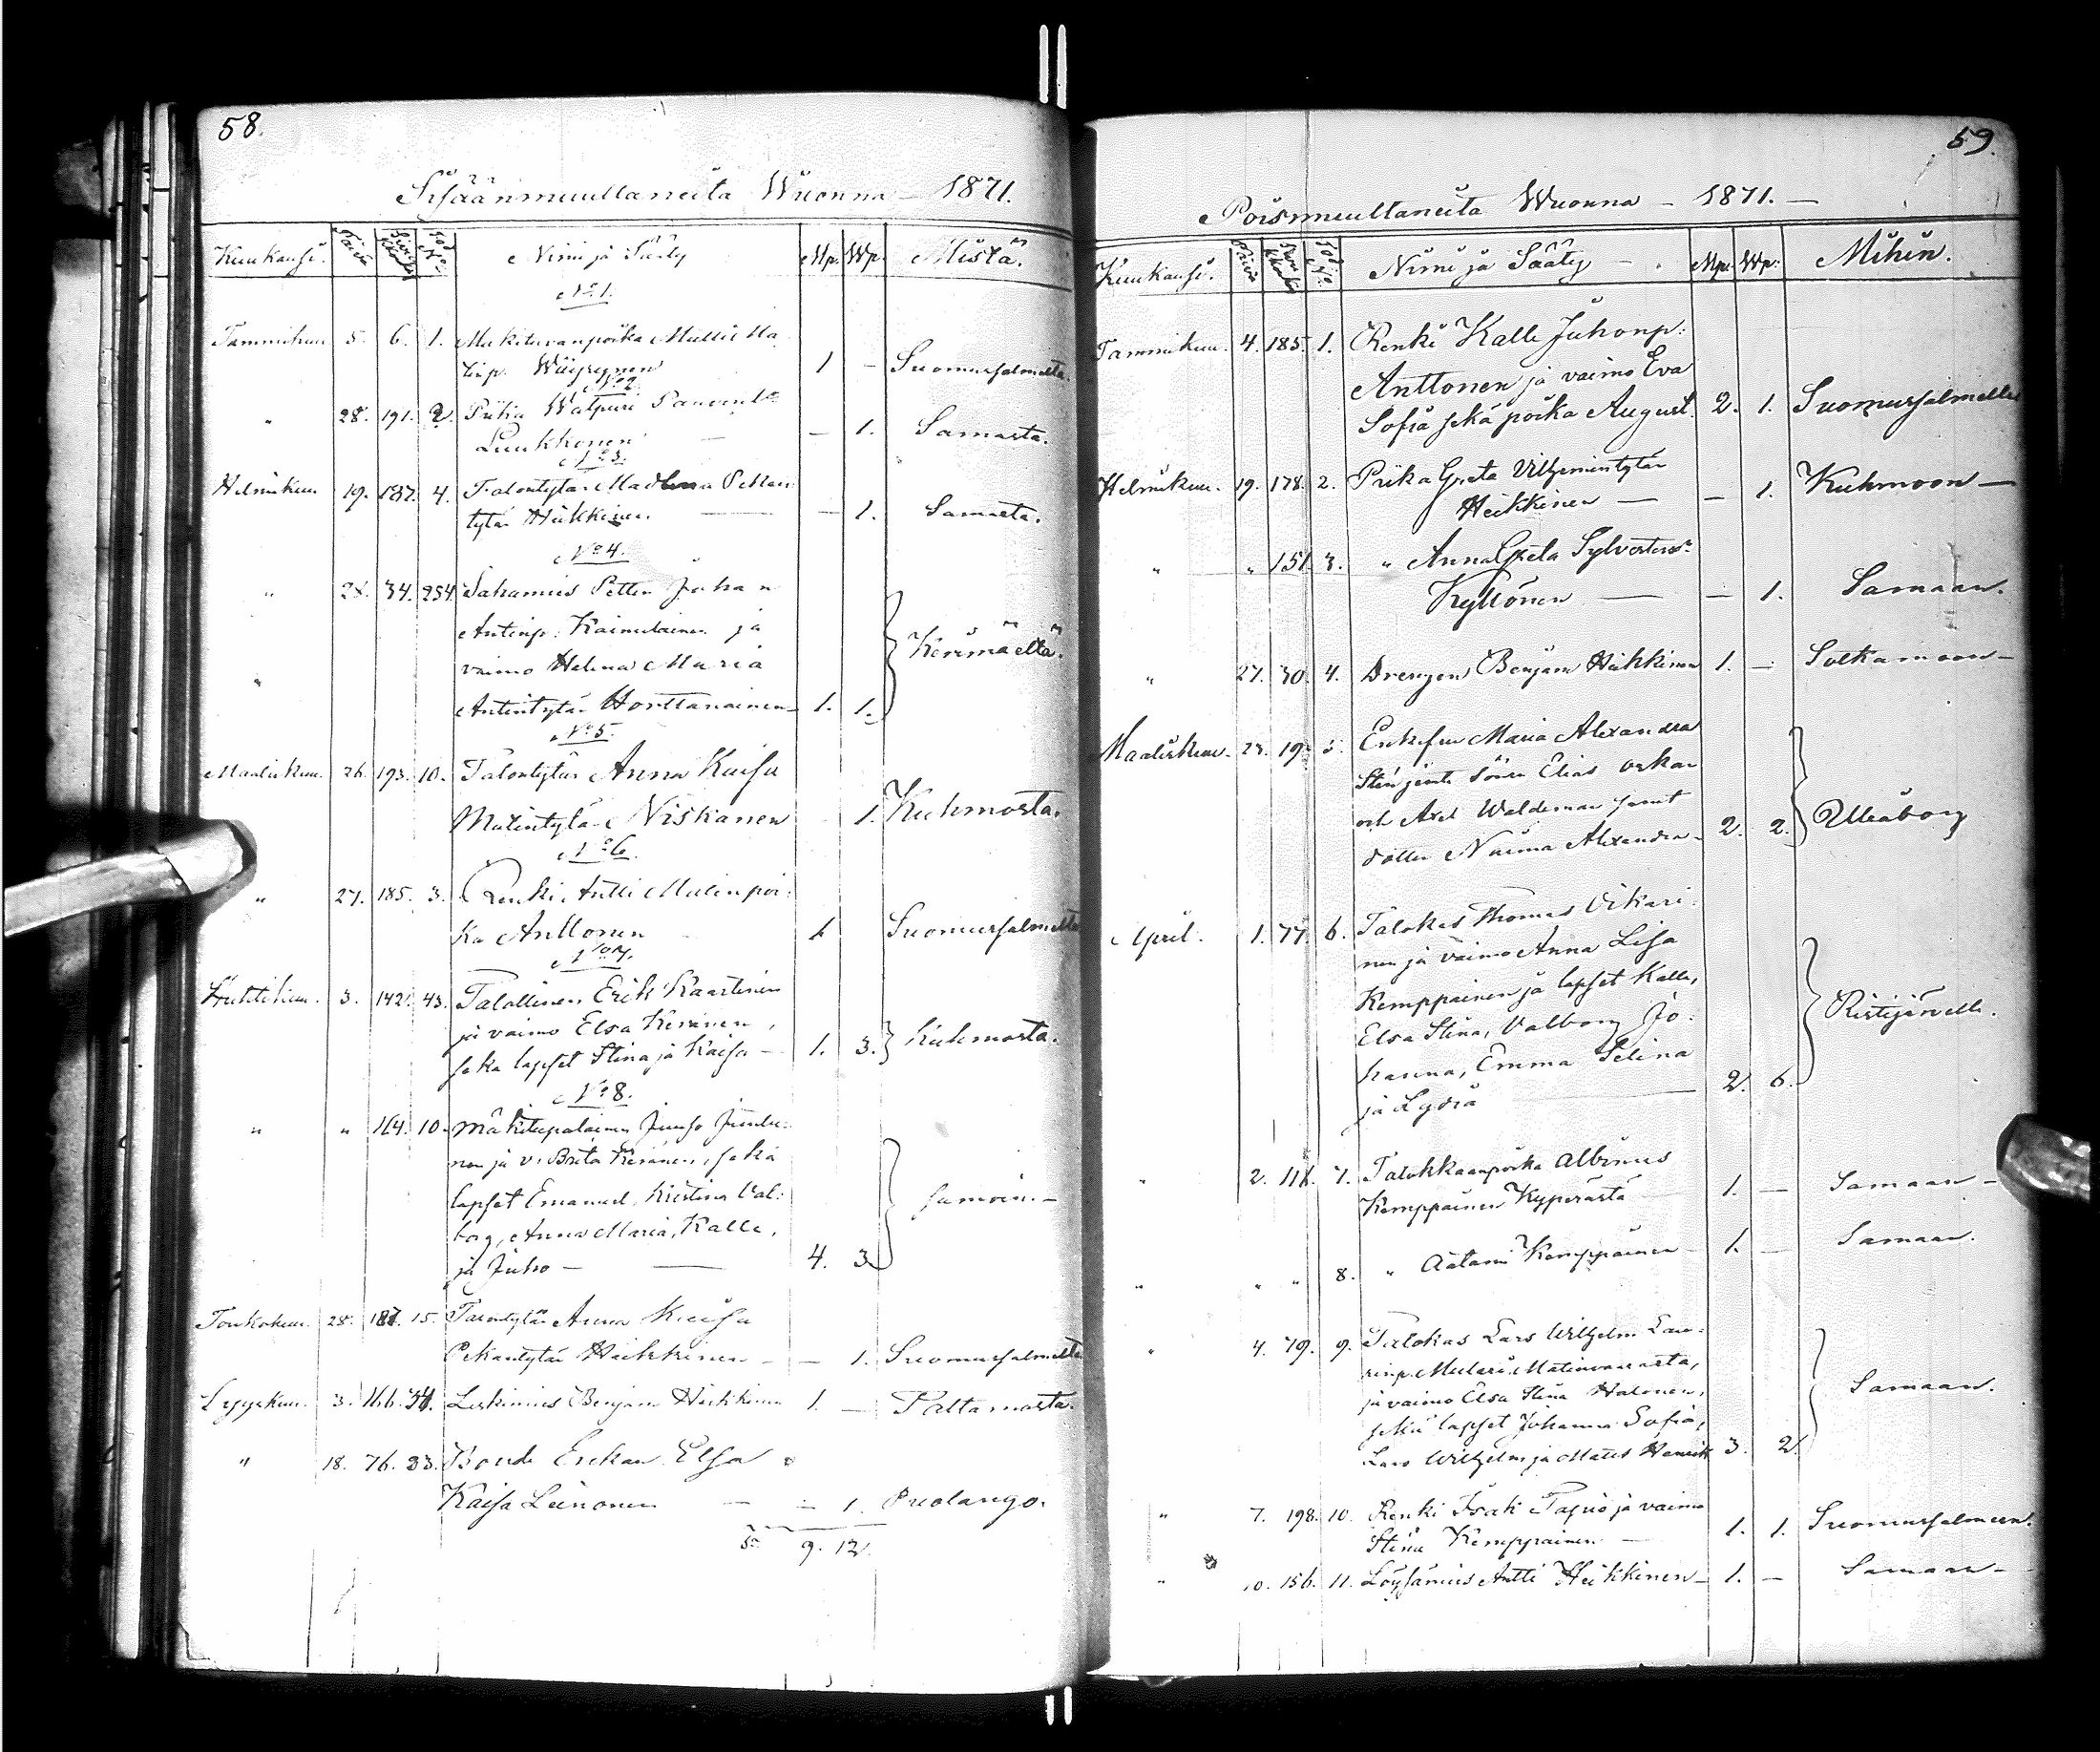 58.
Sisäänmuuttaneita Wuonna — 1871.
Kuukausi. Päivä Sivu kirj. Tod. No. Nimi ja Sääty Mp. Wp. Mistä.
No 1.
Tammikuu 5. 6. 1. Mäkituvanpoika Matti Ma-
tinp. 1 — Suomussalmelta.
No 2.
" 28. 191. 2. Piika Walpuri
Luukkonen — — 1. Samasta.
No 3.
Helmikuu 19. 187. 4. Talontytär Madlena Pekan
tytär Heikkinen. — — 1. Samasta.
No 4.
" 28. 34. 254. Sahamies Petter Johan
Antinp. Kainulainen ja
" vaimo Helena Maria Kerimäeltä.
Antintytär Honttanainen 1. 1.
No 5.
Maaliskuu 26. 193. 10. Talontytär Anna Kaisa
Matintytär Niskanen 1. Kuhmosta.
No 6.
" 27. 185. 3. Renki Antti Matinpoi-
ka Anttonen 1 Suomussalmelta
No 7.
Huhtikuu. 3. 142. 43. Talollinen Erik Kaartinen
ja vaimo Elsa Keränen,
seka lapset Stina ja Kaisa — 1. 3. Kuhmosta.
No 8.
" " 164. 10. Mäkitupalainen Juuso Juntu-
nen ja v. Brita Keränen, sekä
lapset Emanuel, Kristina Val-
borg, Anna Maria, Kalle, samoin. —
ja Juho — — 4. 3.
Toukokuu. 28. 187. 15. Talontytär Anna Kaisa
Pekantytär Heikkinen — — 1. Suomussalmelta
Lyyskuu. 3. 166. 34. Leskimies Benjam Heikkinen 1. — Paltamosta.
" 18. 76. 33. Bonde Enkan Elsa
Kaisa Leinonen — — 1. Puolango.
Sa 9. 12.
59.
Poismuuttaneita Wuonna — 1871. —
Kuukausi. Päivä Sivu kirj. Tod. No. Nimi ja Sääty — . Mp. Wp. Mihin.
Tammikuu. 4. 185. 1. Renki Kalle Juhonp.
Anttonen ja vaimo Eva
Sofia sekä poika August. 2. 1. Suomussalmelle
Helmikuu. 19. 178. 2. Piika Greta Vilhemintytär
Heikkinen — — 1. Kuhmoon —
" " 151. 3. " Anna Greta Sylvesterstr
Kyllönen — — 1. Samaan.
" 27. 30. 4. Drengen Benjam Heikkinen 1. — Sotkamoon —
Maaliskuu. 23. 19. 5. Enkefru Maria Alexandra
Sten jemte Söner Elias Oskar
och Axel Waldemar samt
dotter Naima Alexandra 2. 2. Uleåborg
April. 1. 77. 6. Talokas Thomas Oikari-
nen ja vaimo Anna Lisa
Kemppainen ja lapset Kalle,
Elsa Stina, Valborg Jo- Ristijärvelle.
hanna, Emma Selina
ja Lydia — 2. 6.
" 2. 116. 7. Talokkaanpoika Albinus
Kemppainen Kyperästä 1. — Samaan —
" " " 8. " Aatami Kemppainen 1. — Samaan.
" 4. 79. 9. Talokas Lars Wilhelm Lau-
rinp. Mulari, Matinvaarasta,
ja vaimo Elsa Stina Halonen, Samaan.
sekä lapset Johanna Sofia,
Lars Wilhelm ja Matts Henrik 3. 2.
" 7. 198. 10. Renki Isak Tapio ja vaimo
Stina Kemppainen — 1. 1. Suomussalmeen.
" 10. 156. 11. Löysämies Antti Heikkinen — 1. — Samaan —